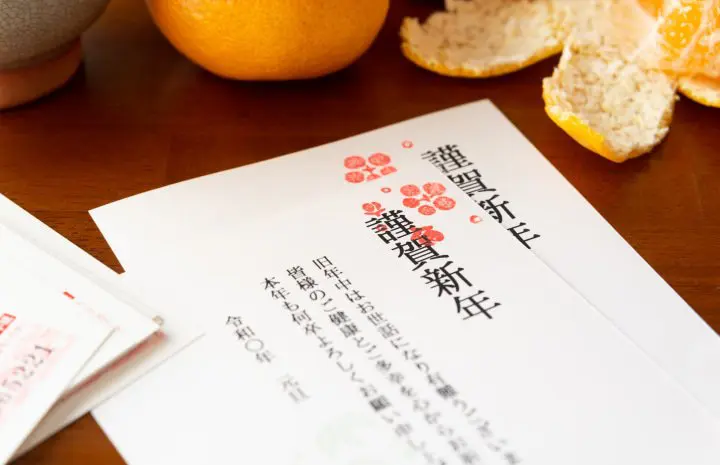 謹賀新年
謹賀新年
旧年中はお世話になり有難うございま
皆様のご健康とご多幸を心からお祈
本年も何卒よろしくお願い申し
令和〇年 元旦
5221